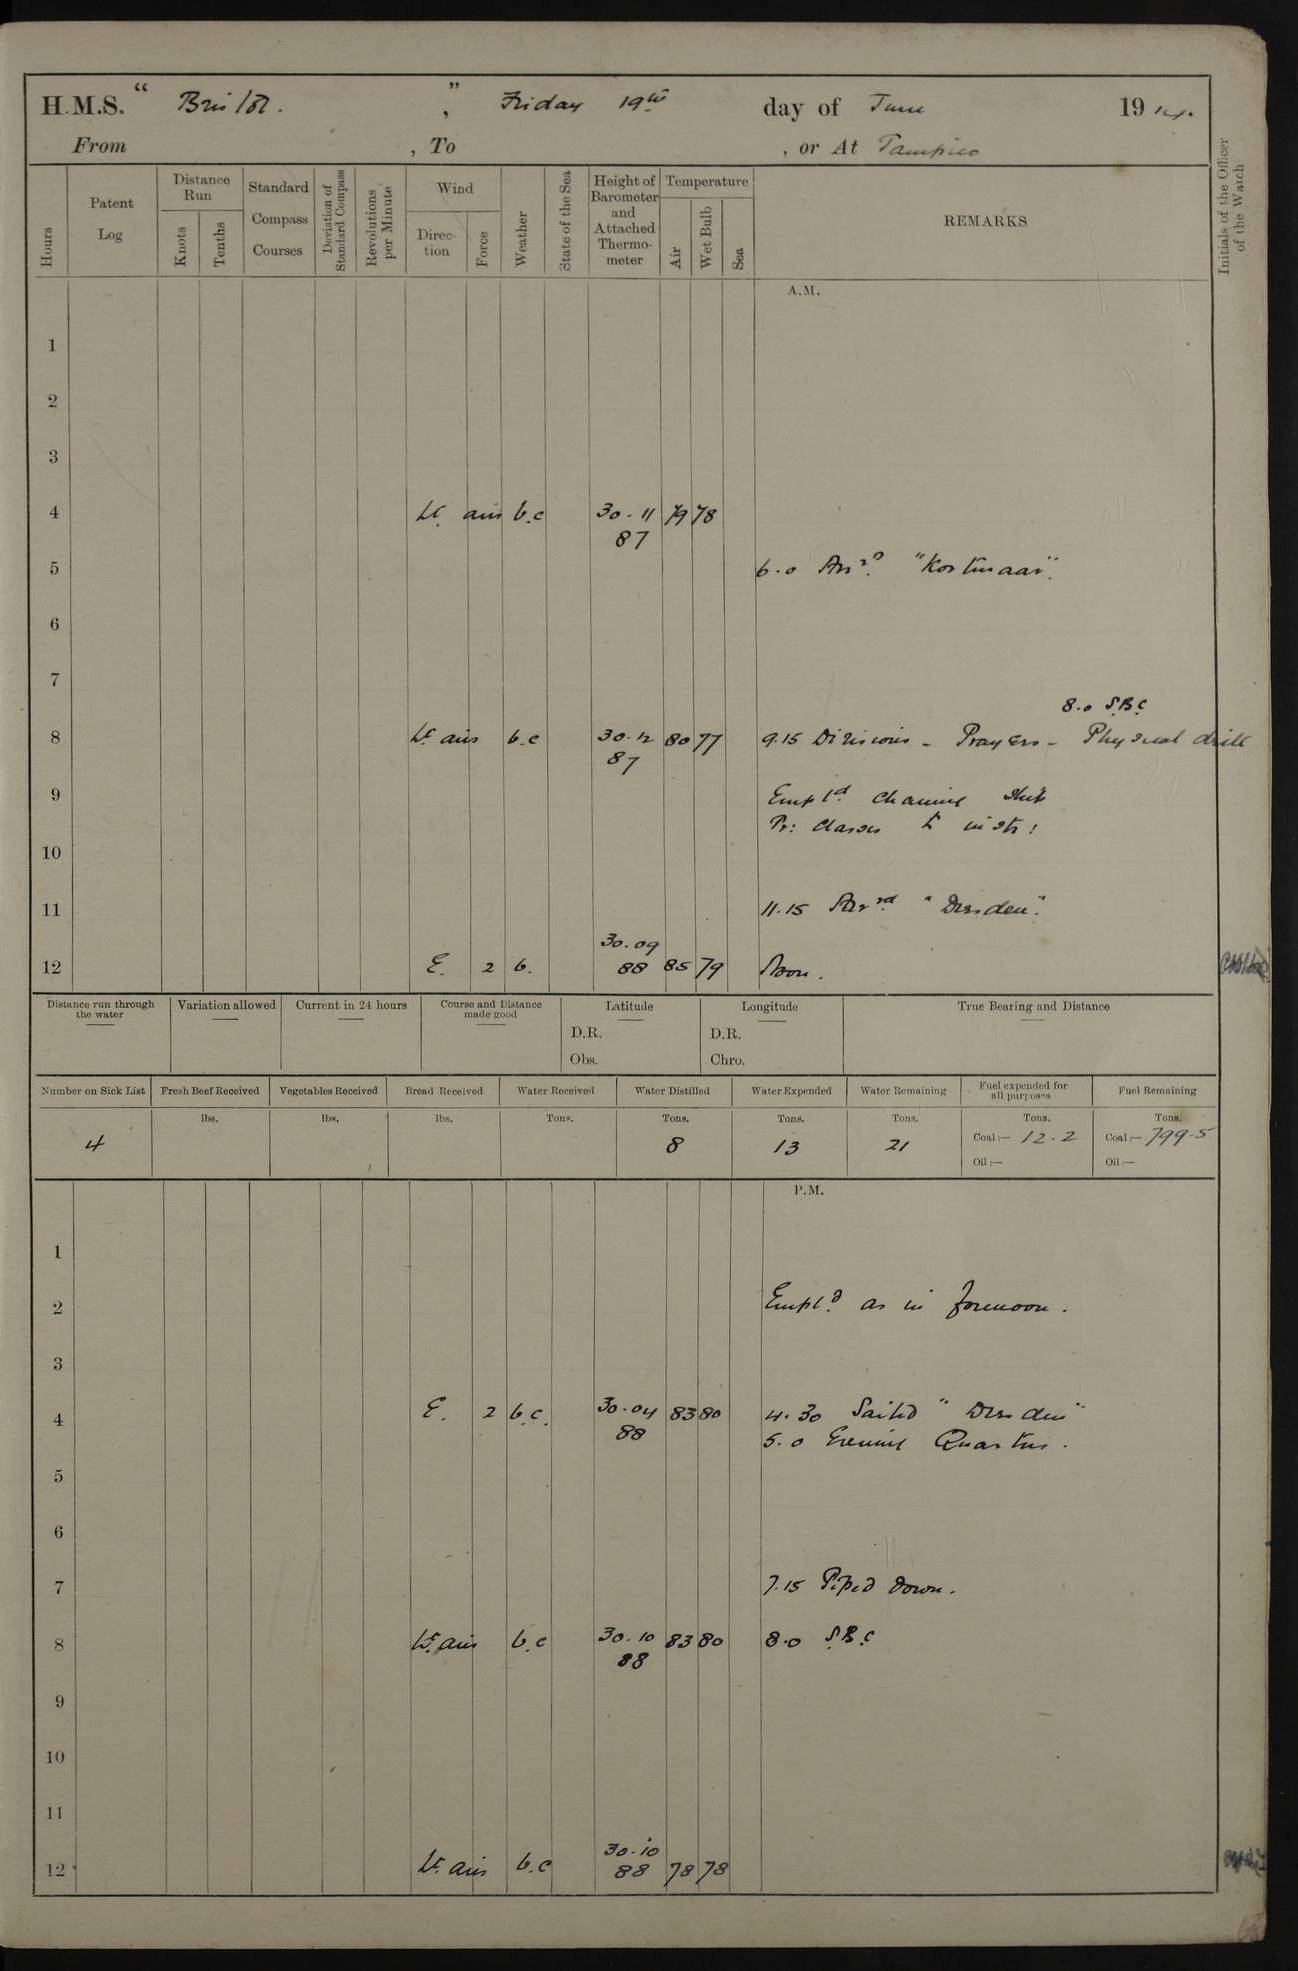 H.M.S. " Bristol. ", Friday 19th day of June 1914.
From , To , or At Tampico
Hours
Patent Log
Distance Run
Knots
Tenths
Standard Compass Courses
Deviation of Standard Compass
Revolutions per Minute
Wind
Direction
Force
Weather
State of the Sea
Height of Barometer and Attached Thermometer
Temperature
Air
Wet Bulb
Sea
REMARKS
Initials of the Officer of the Watch
A.M.
1
2
3
4 Lt. airs b.c 30.11 79 78
87
5 6.0 Arrd. "Kortenaar".
6
7
8.0 S.B.C
8 Lt airs b.c 30.12 80 77 9.15 Divisions - Prayers - Physical drill
87
9 Empld. cleaning ship
Pr: classes to instr:
10
11 11.15 Arrrd "Dresden".
30.09
12 E. 2 b. 88 85 79 Noon.
Distance run through the water
Variation allowed
Current in 24 hours
Course and Distance made good
Latitude
D.R.
Obs.
Longitude
D.R.
Chro.
True Bearing and Distance
Number on Sick List
Fresh Beef Received
Vegetables Received
Bread Received
Water Received
Water Distilled
Water Expended
Water Remaining
Fuel expended for all purposes
Fuel Remaining
lbs. lbs. lbs. Tons. Tons. Tons. Tons. Tons. Tons.
4 8 13 21 Coal:— 12.2 Coal:— 799.5
Oil:— Oil:—
P.M.
1
2 Empld. as in forenoon.
3
4 E. 2 b.c. 30.04 83 80 4.30 Sailed "Dresden"
88 5.0 Evening Quarters.
5
6
7 7.15 Piped down.
8 Lt. airs b.c 30.10 83 80 8.0 S.B.C
88
9
10
11
30.10
12 Lt. airs b.c 88 78 78